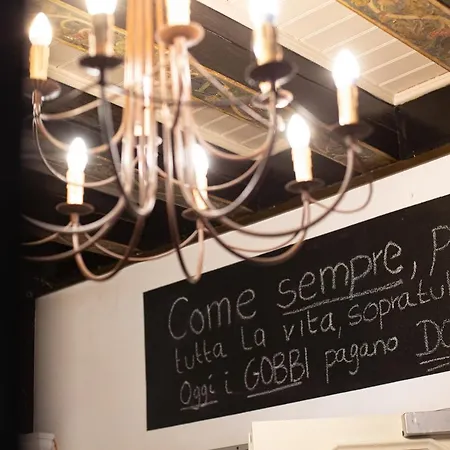 Come sempre,
tutta la vita, sopratul
Oggi i GOBBI pagano